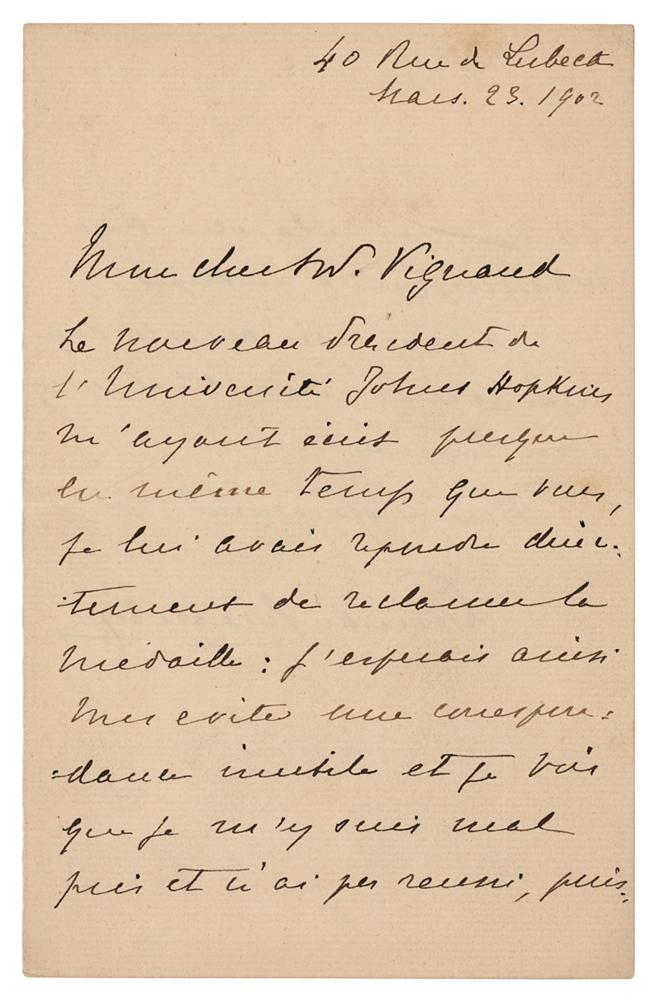 40 Rue de Lubeck
Mars. 23. 1902
Mon cher W. Vignaud
Le nouveau President de
l'Université Johns Hopkins
m'ayant écrit presque
en même temps que vous,
je lui avais repondu direc-
tement de reclamer la
medaille : j'esperais ainsi
une correspon-
=dance inutile et je vois
que je m'y suis mal
pris et n'ai pas reussi, puis=